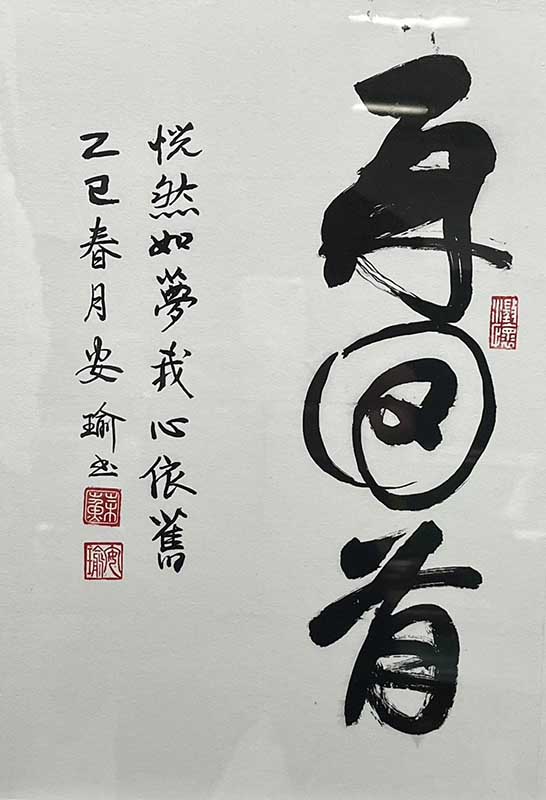 再回首
恍然如夢我心依舊
乙巳春月安瑜书
安瑜